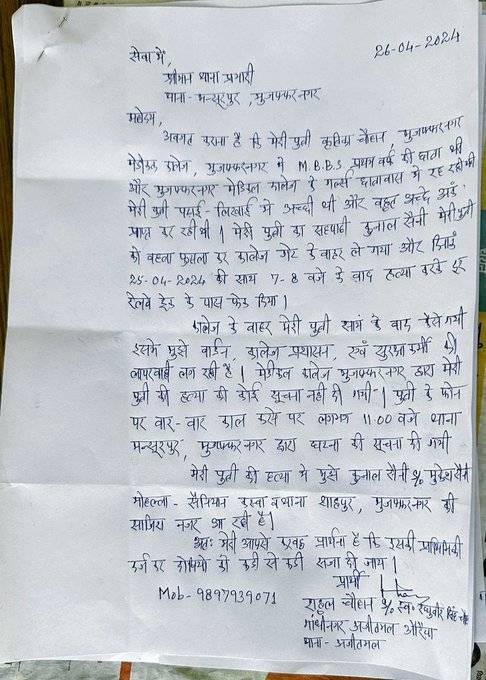 26-04-2024
सेवा में,
श्रीमान थाना प्रभारी
थाना- मन्सूरपुर, मुजफ्फरनगर
महोदय,
अवगत कराना है कि मेरी पुत्री कृतिका चौहान, मुजफ्फरनगर
मेडीकल कालेज, मुजफ्फरनगर में M.B.B.S प्रथम वर्ष की छात्रा थी
और मुजफ्फरनगर मेडिकल कालेज के गर्ल्स छात्रावास में रह रही थी
मेरी पुत्री पढाई-लिखाई में अच्छी थी और बहुत अच्छे अंक
प्राप्त कर रही थी। मेरी पुत्री का सहपाठी कुनाल सैनी मेरी पुत्री
को बहला फुसला कर कालेज गेट के बाहर ले गया और दिनांक
25-04-2024 की साय 7-8 बजे के बाद हत्या करके
रेलवे ट्रेक के पास फेक दिया।
कालेज के बाहर मेरी पुत्री सायं के बाद कैसे गयी
इसमे मुझे वार्डन, कालेज प्रशासन, एवं सुरक्षा कर्मी की
लापरवाही लग रही है। मेडीकल कालेज मुजफ्फरनगर द्वारा मेरी
पुत्री की हत्या की कोई सूचना नही दी गयी। पुत्री के फोन
पर बार-बार काल करने पर लगभग 11:00 बजे थाना
मन्सूरपुर, मुजफ्फरनगर द्वारा घटना की सूचना दी गयी
मेरी पुत्री की हत्या में मुझे कुनाल सैनी S/o मुकेश सैनी
मोहल्ला- सैनियान कस्बा व थाना शाहपुर, मुजफ्फरनगर की
साजिश नजर आ रही है।
अतः मेरी आपसे करबद्ध प्रार्थना है कि इसकी प्राथमिकी
दर्ज कर दोषियो को कडी से कडी सजा दी जाय।
प्रार्थी
Mob- 9897939071
राहुल चौहान S/o स्व० रघुवीर सिंह
गांधीनगर अजीतमल औरैया
थाना- अजीतमल